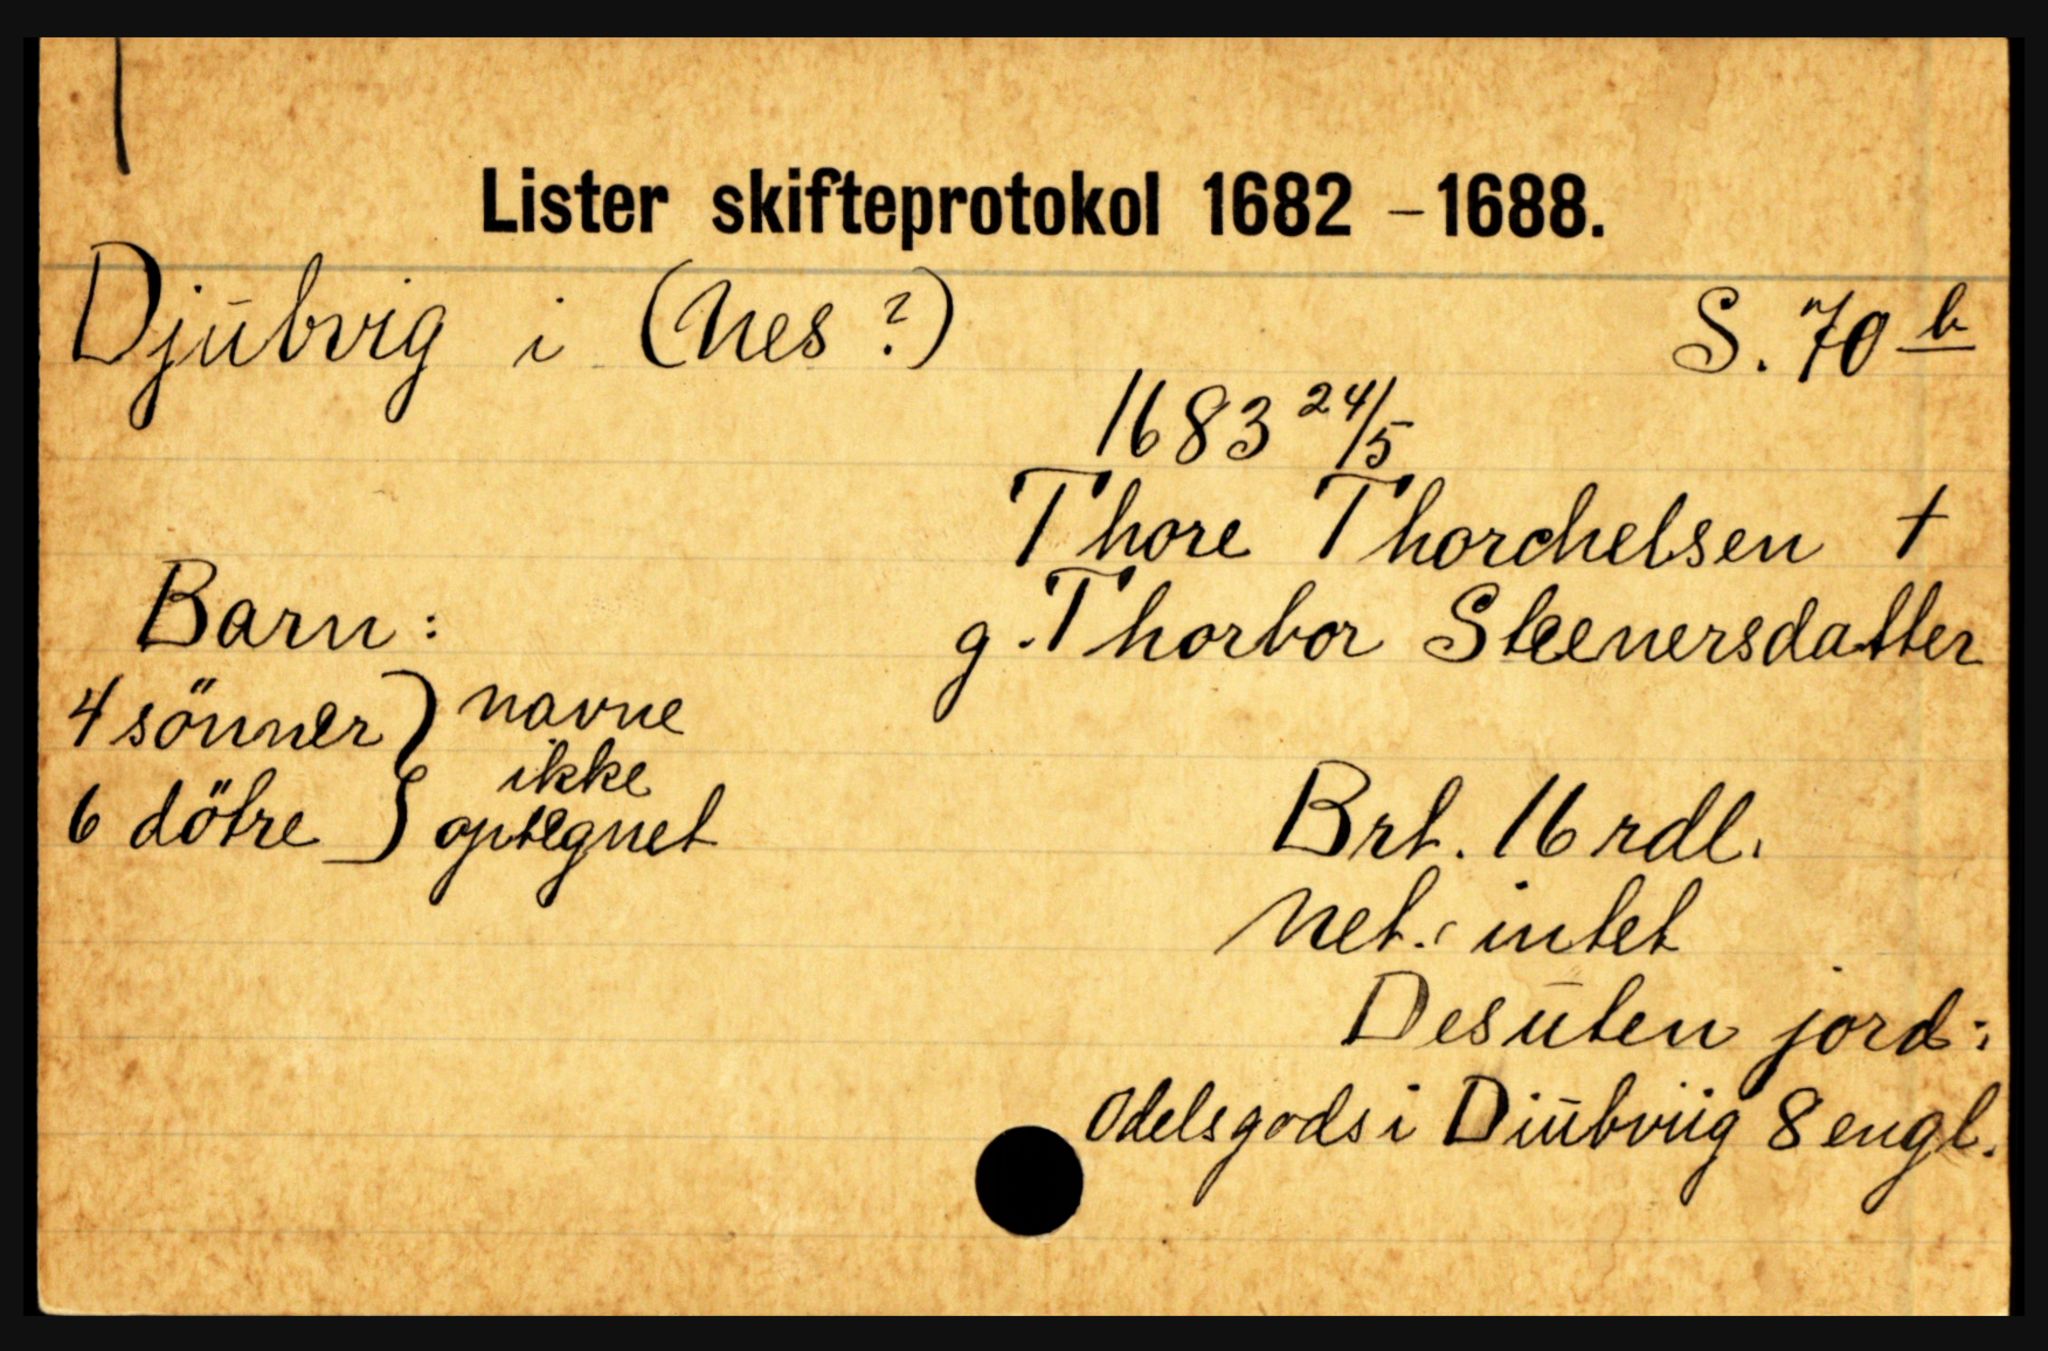 Lister skifteprotokol 1682 - 1688.
Djübvig i (Nes ?) S. 70 b
1683 24/5
Thore Thorchelsen †
g. Thorbor Steenersdatter
Barn:
4 sönner } navne
ikke
6 dötre } optegnet
Brt. 16 rdl.
Net.: intet
Desuten jord:
Odelsgods i Diübviig 8 engl.